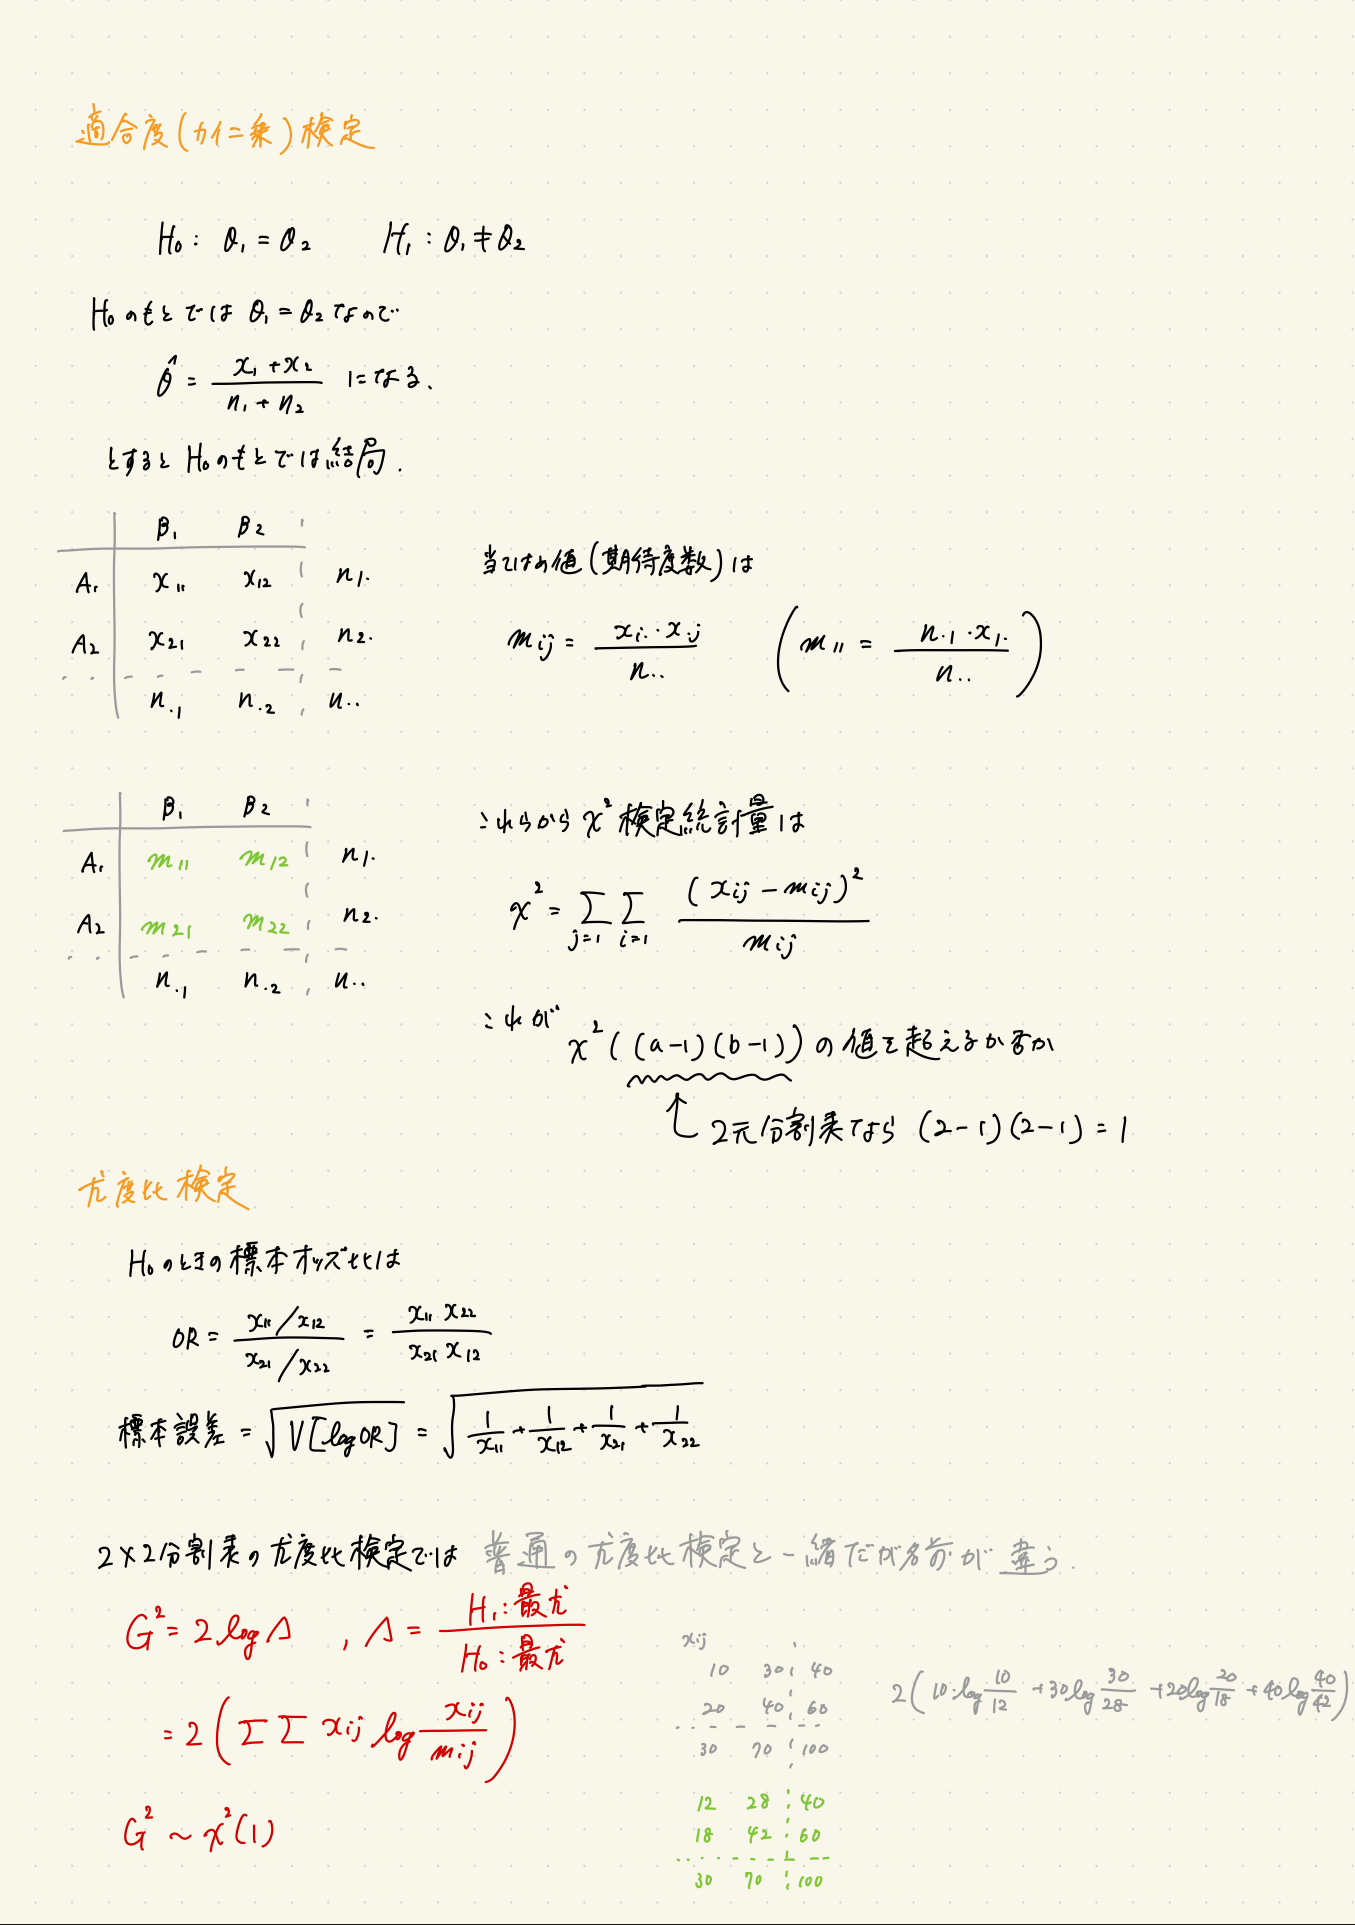 適合度(カイ二乗)検定
H₀: θ₁ = θ₂  H₁: θ₁ ≠ θ₂
H₀のもとでは θ₁ = θ₂ なので
θ̂ = (x₁ + x₂)/(n₁ + n₂) になる.
とすると H₀のもとでは結局.
B₁ B₂
A₁ x₁₁ x₁₂ n₁.
A₂ x₂₁ x₂₂ n₂.
n.₁ n.₂ n..
当てはめ値(期待度数)は
mij = (xi. · x.j)/n.. (m₁₁ = (n.₁ · x₁.)/n..)
B₁ B₂
A₁ m₁₁ m₁₂ n₁.
A₂ m₂₁ m₂₂ n₂.
n.₁ n.₂ n..
これらから χ² 検定統計量は
χ² = Σj=1 Σi=1 (xij − mij)²/mij
これが χ²((a−1)(b−1))の値を超えるか否か
2元分割表なら (2−1)(2−1) = 1
尤度比検定
H₀のときの標本オッズ比は
OR = (x₁₁/x₁₂)/(x₂₁/x₂₂) = (x₁₁ x₂₂)/(x₂₁ x₁₂)
標本誤差 = √V[log OR] = √(1/x₁₁ + 1/x₁₂ + 1/x₂₁ + 1/x₂₂)
2×2分割表の尤度比検定では 普通の尤度比検定と一緒だが名前が違う.
G² = 2 log Λ , Λ = H₁:最尤/H₀:最尤
= 2(ΣΣ xij log xij/mij)
G² ~ χ²(1)
xij
10 30 40
20 40 60
30 70 100
2(10·log 10/12 + 30 log 30/28 + 20 log 20/18 + 40 log 40/42)
12 28 40
18 42 60
30 70 100